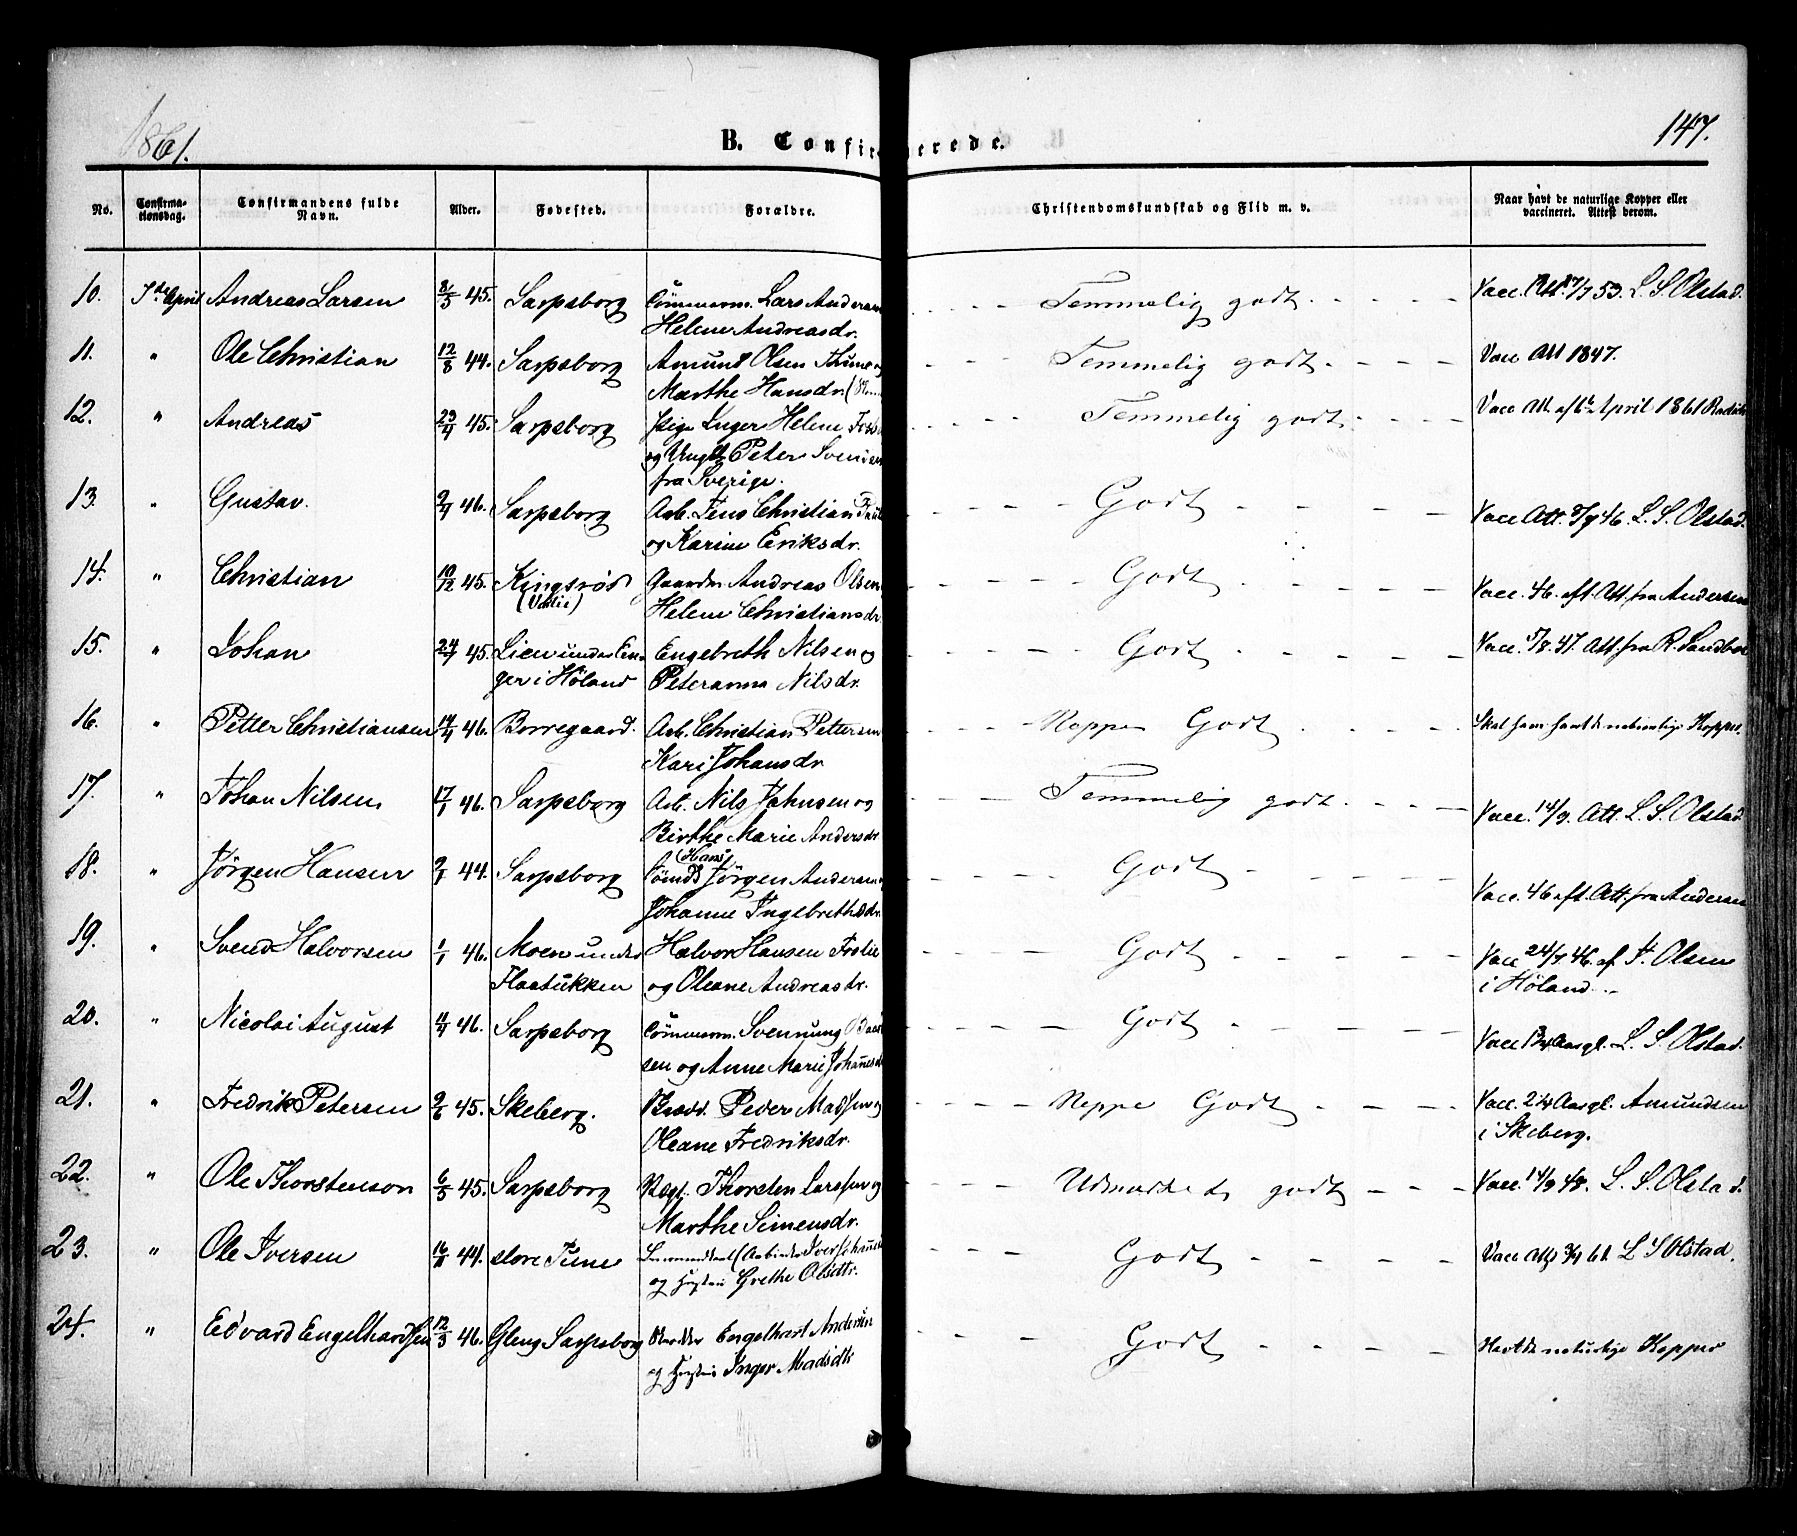 1861.
B. Confirmerede.
147.
No.
Confirma-
tionsdag.
Confirmandens fulde
Navn.
Alder.
Fødested.
Forældre.
Christendomskundskab og Flid m. v.
Naar havt de naturlige Kopper eller
vaccineret. Attest derom.
10. April Andreas Larsen 8/5 45. Sarpsborg Lars Andersen Temmelig godt Vacc. 53. L. S. Olstad.
Helene Andreasdr.
11. " Ole Christian 12/8 44. Sarpsborg Amund Olsen Thune og Temmelig godt Vacc Att 1847.
Marthe Hansdr.
12. " Andreas 23/4 45. Sarpsborg Pige Inger Helene Temmelig godt Vacc Att. af April 1861
og Ungk. Peter Svendsen
fra Sverige.
13. " Gustav. 2/4 46. Sarpsborg Arb. Jens Christian Godt Vacc Att. 46. L. S. Olstad.
og Karine Eriksdr.
14. " Christian 10/12 45. Kingsrød Gaardm. Andreas Olsen Godt Vacc. 46. eft. Att. fra Andersen
(Varlie) Helene Christiansdr.
15. " Johan 24/7 45. Lien under En- Engebreth Nilsen og Godt Vacc. 5/8 47. Att. fra R. Sandboe
ger i Höland Peteranna Nilsdr.
16. " Petter Christiansen 14/4 46. Borregaard. Arb. Christian Pettersen Neppe Godt Skal have havt de naturlige Kopper.
Kari Johansdr
17. " Johan Nilsen 17/1 46. Sarpsborg Arb. Nils Johnsen og Temmelig godt Vacc. 14/9. Att. L. S. Olstad
Birthe Marie Andersdr
18. " Jörgen Hansen 2/1 44. Sarpsborg (Hans) Jörgen Andersen Godt Vacc. 46 eft. Att. fra Andersen
Johanne Ingebrethsdr.
19. " Svend Halvorsen 1/1 46. Moen under Halvor Hansen Godt Vacc 24/7 46. af Olsen
Flaatukken og Oleane Andreasdr. i Höland
20. " Nicolai August 11/4 46. Sarpsborg Svennung Godt Vacc Aargl. L. S. Olstad.
sen og Anne Marie Johannesdr
21. " Fredrik Petersen 2/6 45. Skeberg. Peder Madsen og Neppe Godt Vacc. 2 1/2 Aargl. Amundsen
Oleane Fredriksdr. i Skeberg.
22. " Ole Thorstenson 6/5 45. Sarpsborg Thorsten Larssen og Udmærket godt Vacc. 14/9 48. L. S. Olstad.
Marthe Simensdr.
23. " Ole Iversen 16/11 44. store Tune (Arbeider Iver Johannes Godt Vacc Att 61 L S Olstad.
og Hustru Grethe Olsdtr.
24. " Edvard Engelhardsen 12/3 46. Gleng Sarpsborg Engelhart Andersen Godt Havt de naturlige Kopper
og Hustru Inger Madsdtr